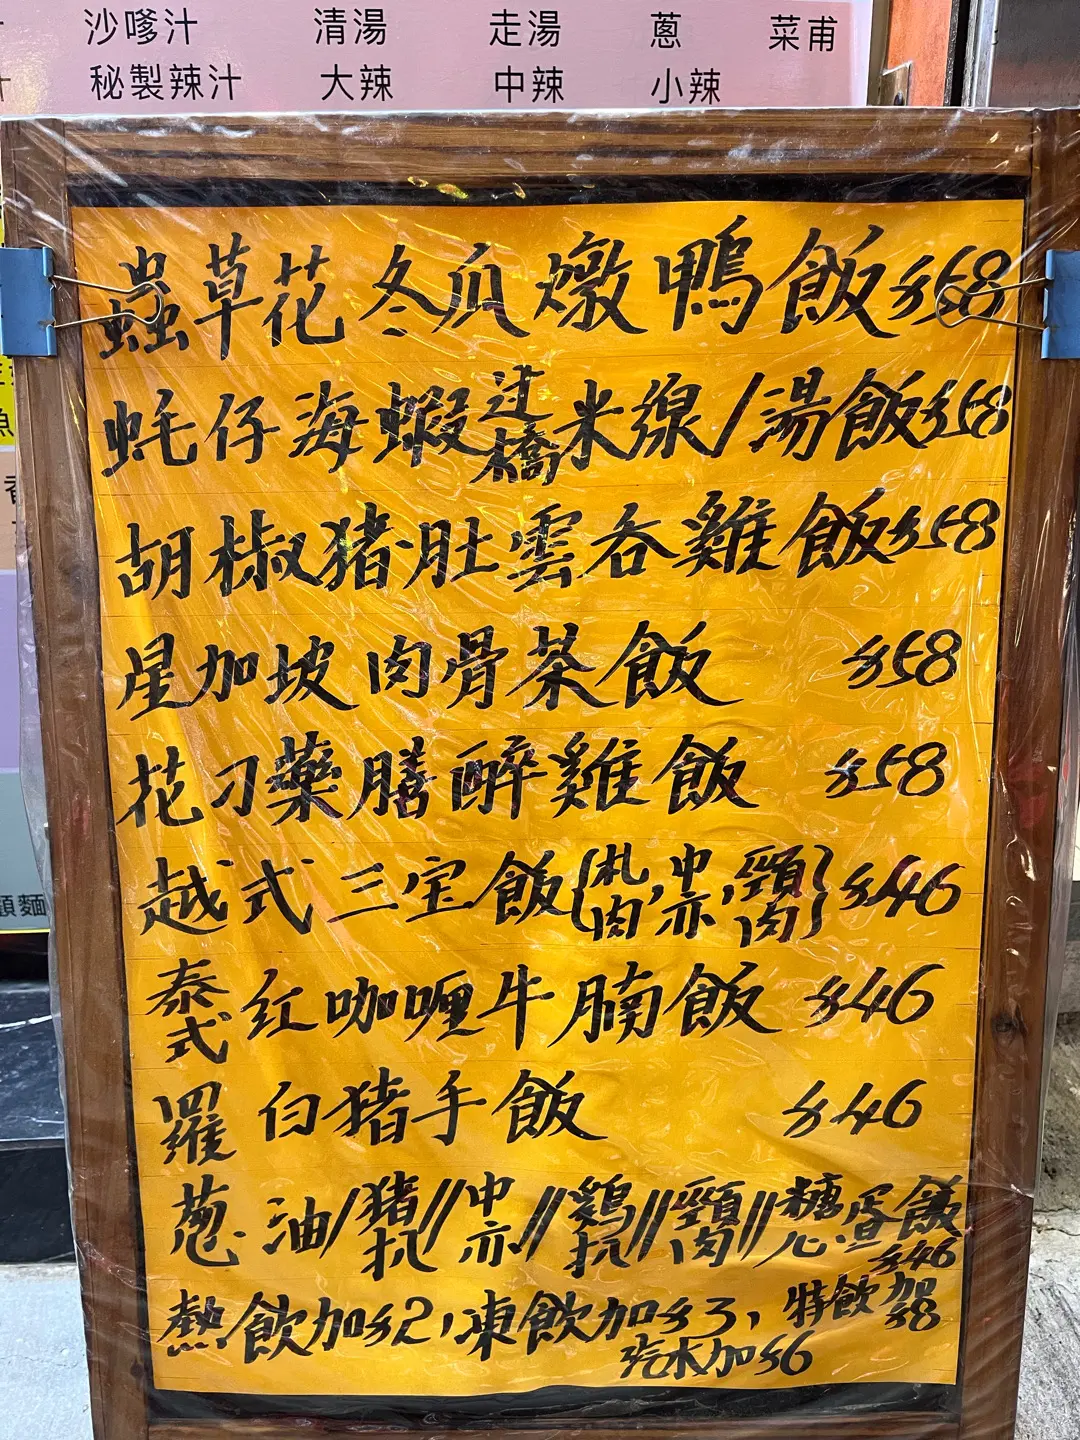 沙嗲汁 清湯 走湯 蔥 菜甫
秘製辣汁 大辣 中辣 小辣
蟲草花冬瓜燉鴨飯 $68
蚝仔海蝦过橋米線/湯飯 $58
胡椒猪肚雲吞雞飯 $58
星加坡肉骨茶飯 $58
花刁藥膳醉雞飯 $58
越式三宝飯(扎肉,中亦,頸肉) $46
泰式红咖喱牛腩飯 $46
羅白猪手飯 $46
葱油/猪扒//中亦//鷄扒//頸肉//糖心蛋飯 $46
熱飲加$2,凍飲加$3,特飲加$8
汽水加$6
魚
香
顧麵